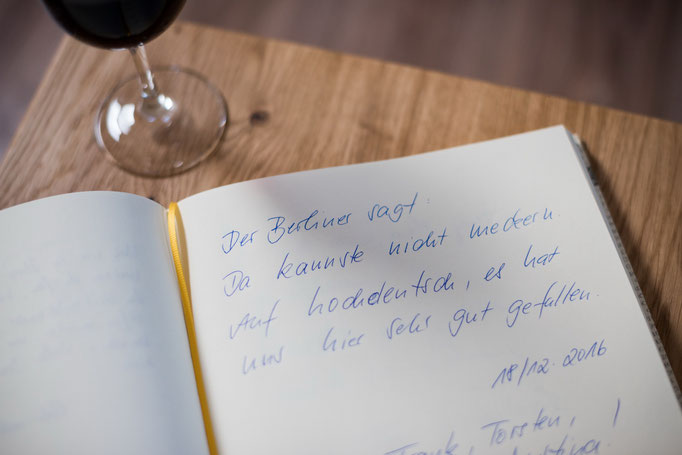 Der Berliner sagt:
Da kannste nicht meckern.
Auf hochdeutsch, es hat
uns hier sehr gut gefallen.
18/12.2016
Frank, Torsten, !